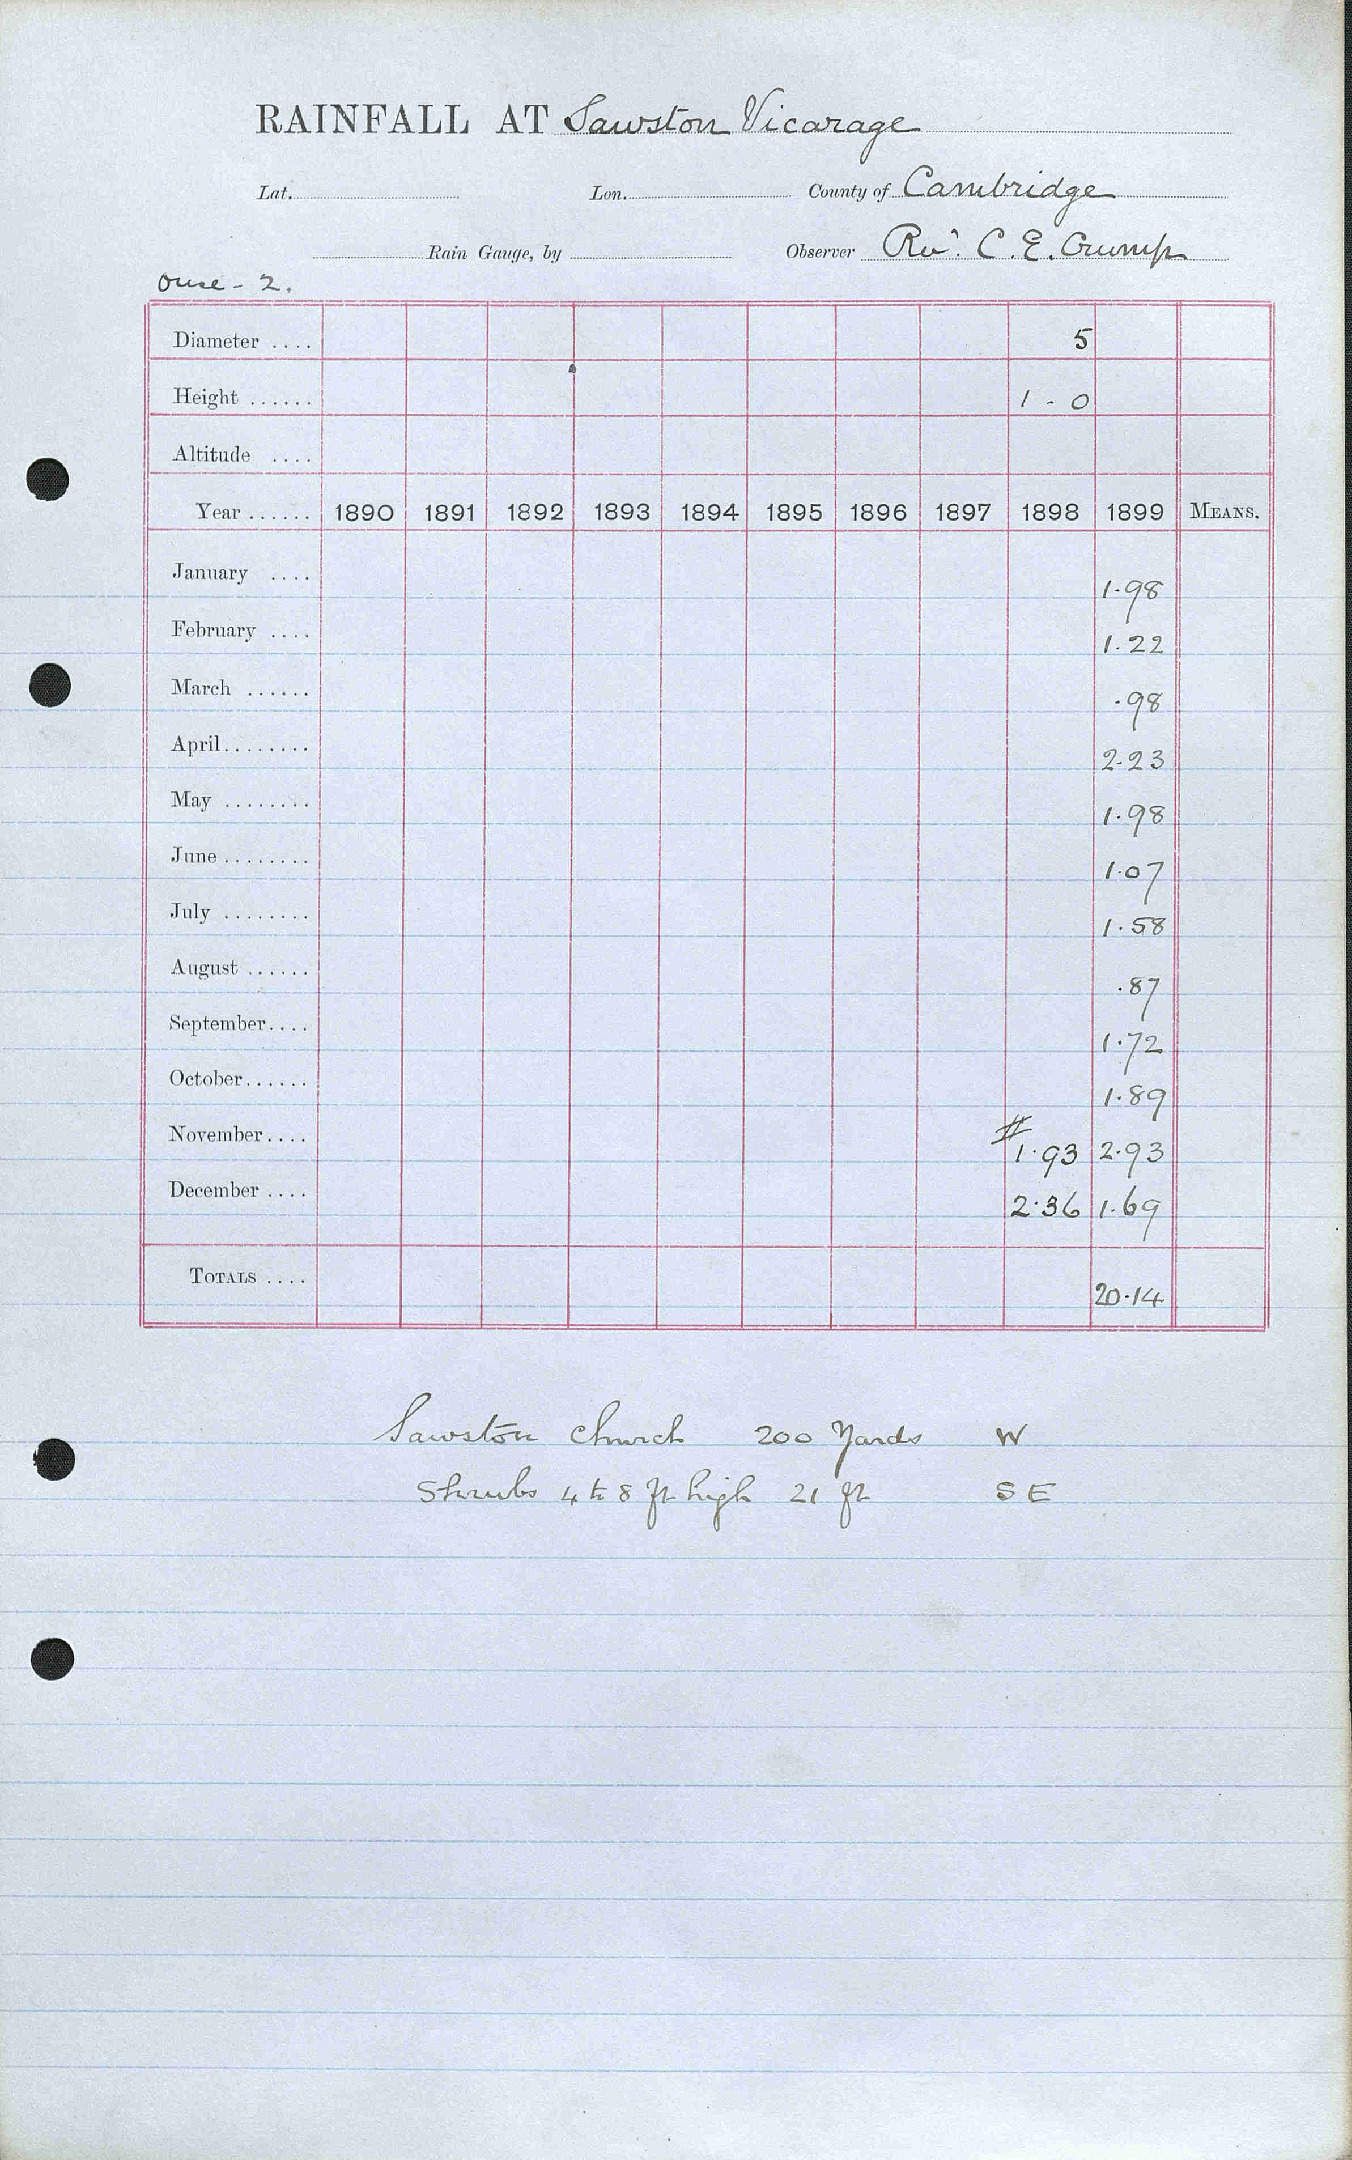 RAINFALL AT Sawston Vicarage
Lat. Lon. County of Cambridge
Rain Gauge, by Observer Rev. C. E. Crump
Ouse - 2.
Diameter .... 5
Height ...... 1 - 0
Altitude ....
Year ...... 1890 1891 1892 1893 1894 1895 1896 1897 1898 1899 MEANS.
January .... 1.98
February .... 1.22
March ...... .98
April ........ 2.23
May ........ 1.98
June ........ 1.07
July ........ 1.58
August ...... .87
September .... 1.72
October ...... 1.89
November .... # 1.93 2.93
December .... 2.36 1.69
TOTALS .... 20.14
Sawston Church 200 Yards W
Shrubs 4 to 8 ft high 21 ft SE